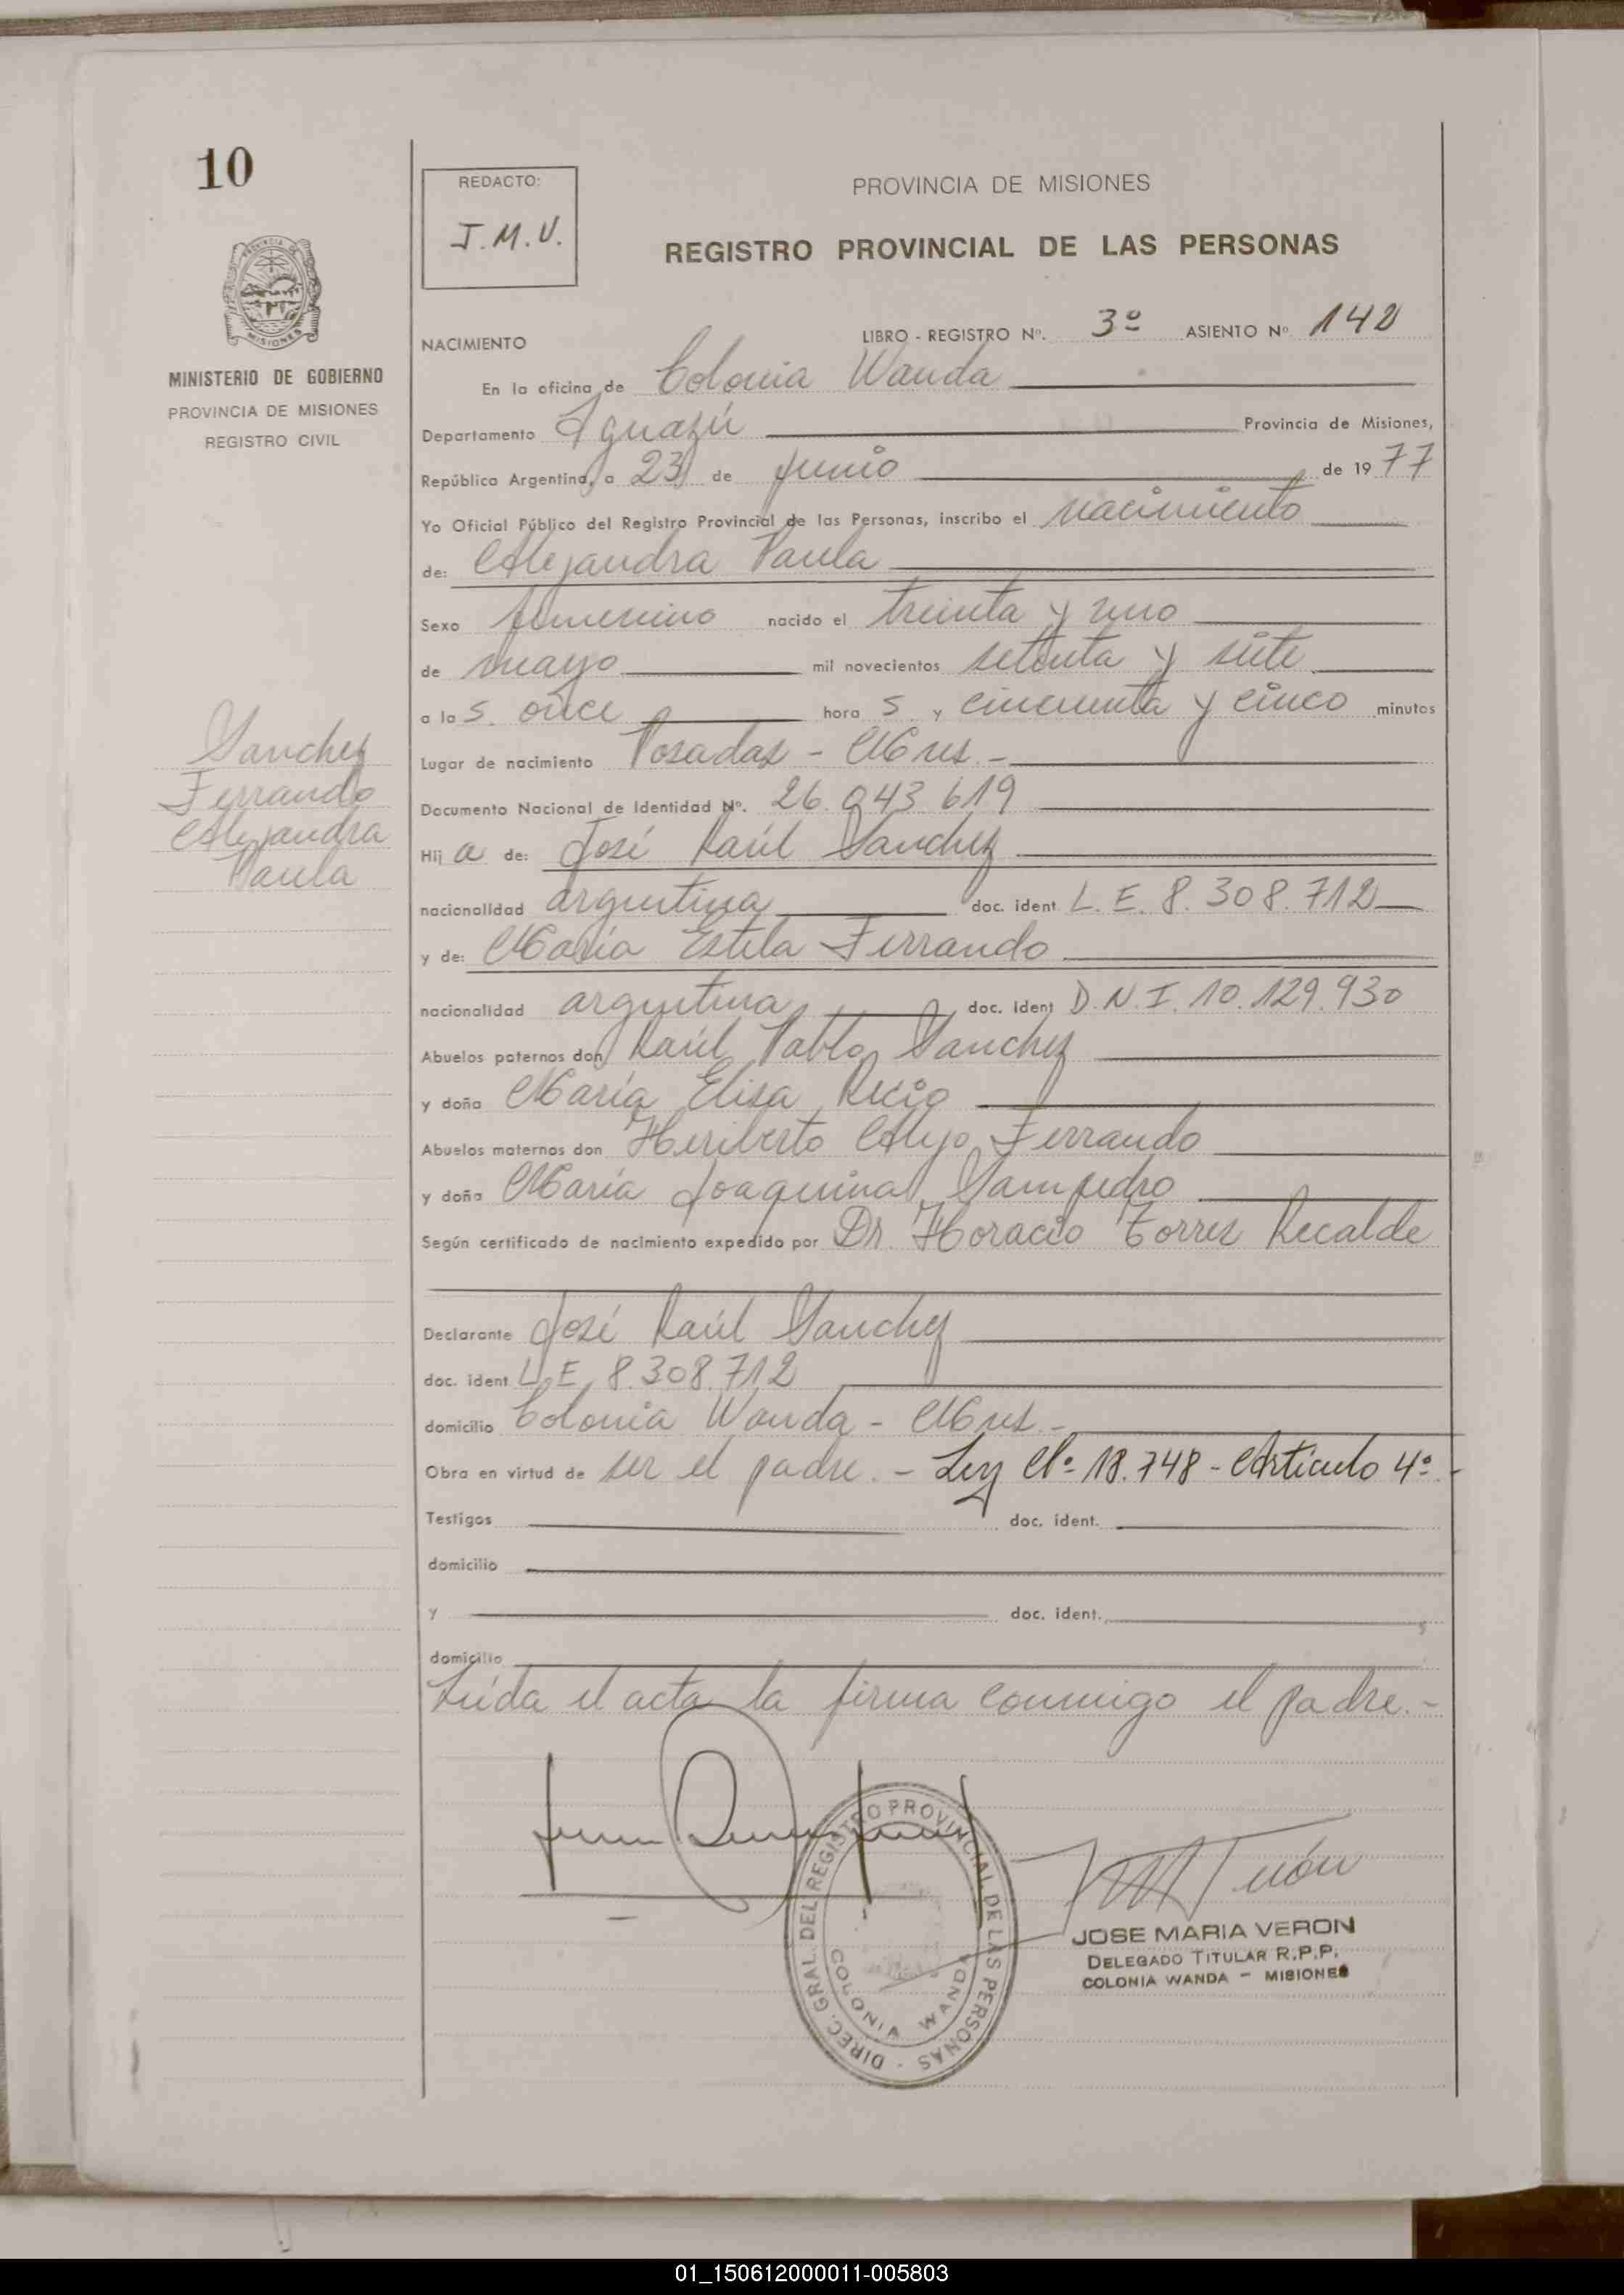 10
REDACTO:
J.M.V.
PROVINCIA DE MISIONES
REGISTRO PROVINCIAL DE LAS PERSONAS
MINISTERIO DE GOBIERNO
PROVINCIA DE MISIONES
REGISTRO CIVIL
NACIMIENTO
LIBRO - REGISTRO Nº. 3º ASIENTO Nº 142
En la oficina de Colonia Wanda
Departamento Iguazú Provincia de Misiones,
República Argentina, a 23 de junio de 1977
Yo Oficial Público del Registro Provincial de las Personas, inscribo el nacimiento
de: Alejandra Paula
Sexo femenino nacido el treinta y uno
de mayo mil novecientos setenta y siete
a las once horas y cincuenta y cinco minutos
Lugar de nacimiento Posadas - Mnes.-
Documento Nacional de Identidad Nº. 26.043.619
Hija de: José Raúl Sanchez
nacionalidad argentina doc. ident. L.E. 8.308.712
y de: María Estela Ferrando
nacionalidad argentina doc. ident D.N.I. 10.129.930
Abuelos paternos don Raúl Pablo Sanchez
y doña María Elisa Recio
Abuelos maternos don Heriberto Alejo Ferrando
y doña María Joaquina Sampedro
Según certificado de nacimiento expedido por Dr. Horacio Torres Recalde
Declarante José Raúl Sanchez
doc. ident L.E. 8.308.712
domicilio Colonia Wanda - Mnes.-
Obra en virtud de ser el padre.- Ley Nº 18.748 - Artículo 4º.-
Testigos doc. ident.
domicilio
y doc. ident.
domicilio
Leída el acta la firma conmigo el padre.-
Sanchez
Ferrando
Alejandra
Paula
DIREC. GRAL. DEL REGISTRO PROVINCIAL DE LAS PERSONAS -
COLONIA WANDA
JOSE MARIA VERON
DELEGADO TITULAR R.P.P.
COLONIA WANDA - MISIONES
01_150612000011-005803